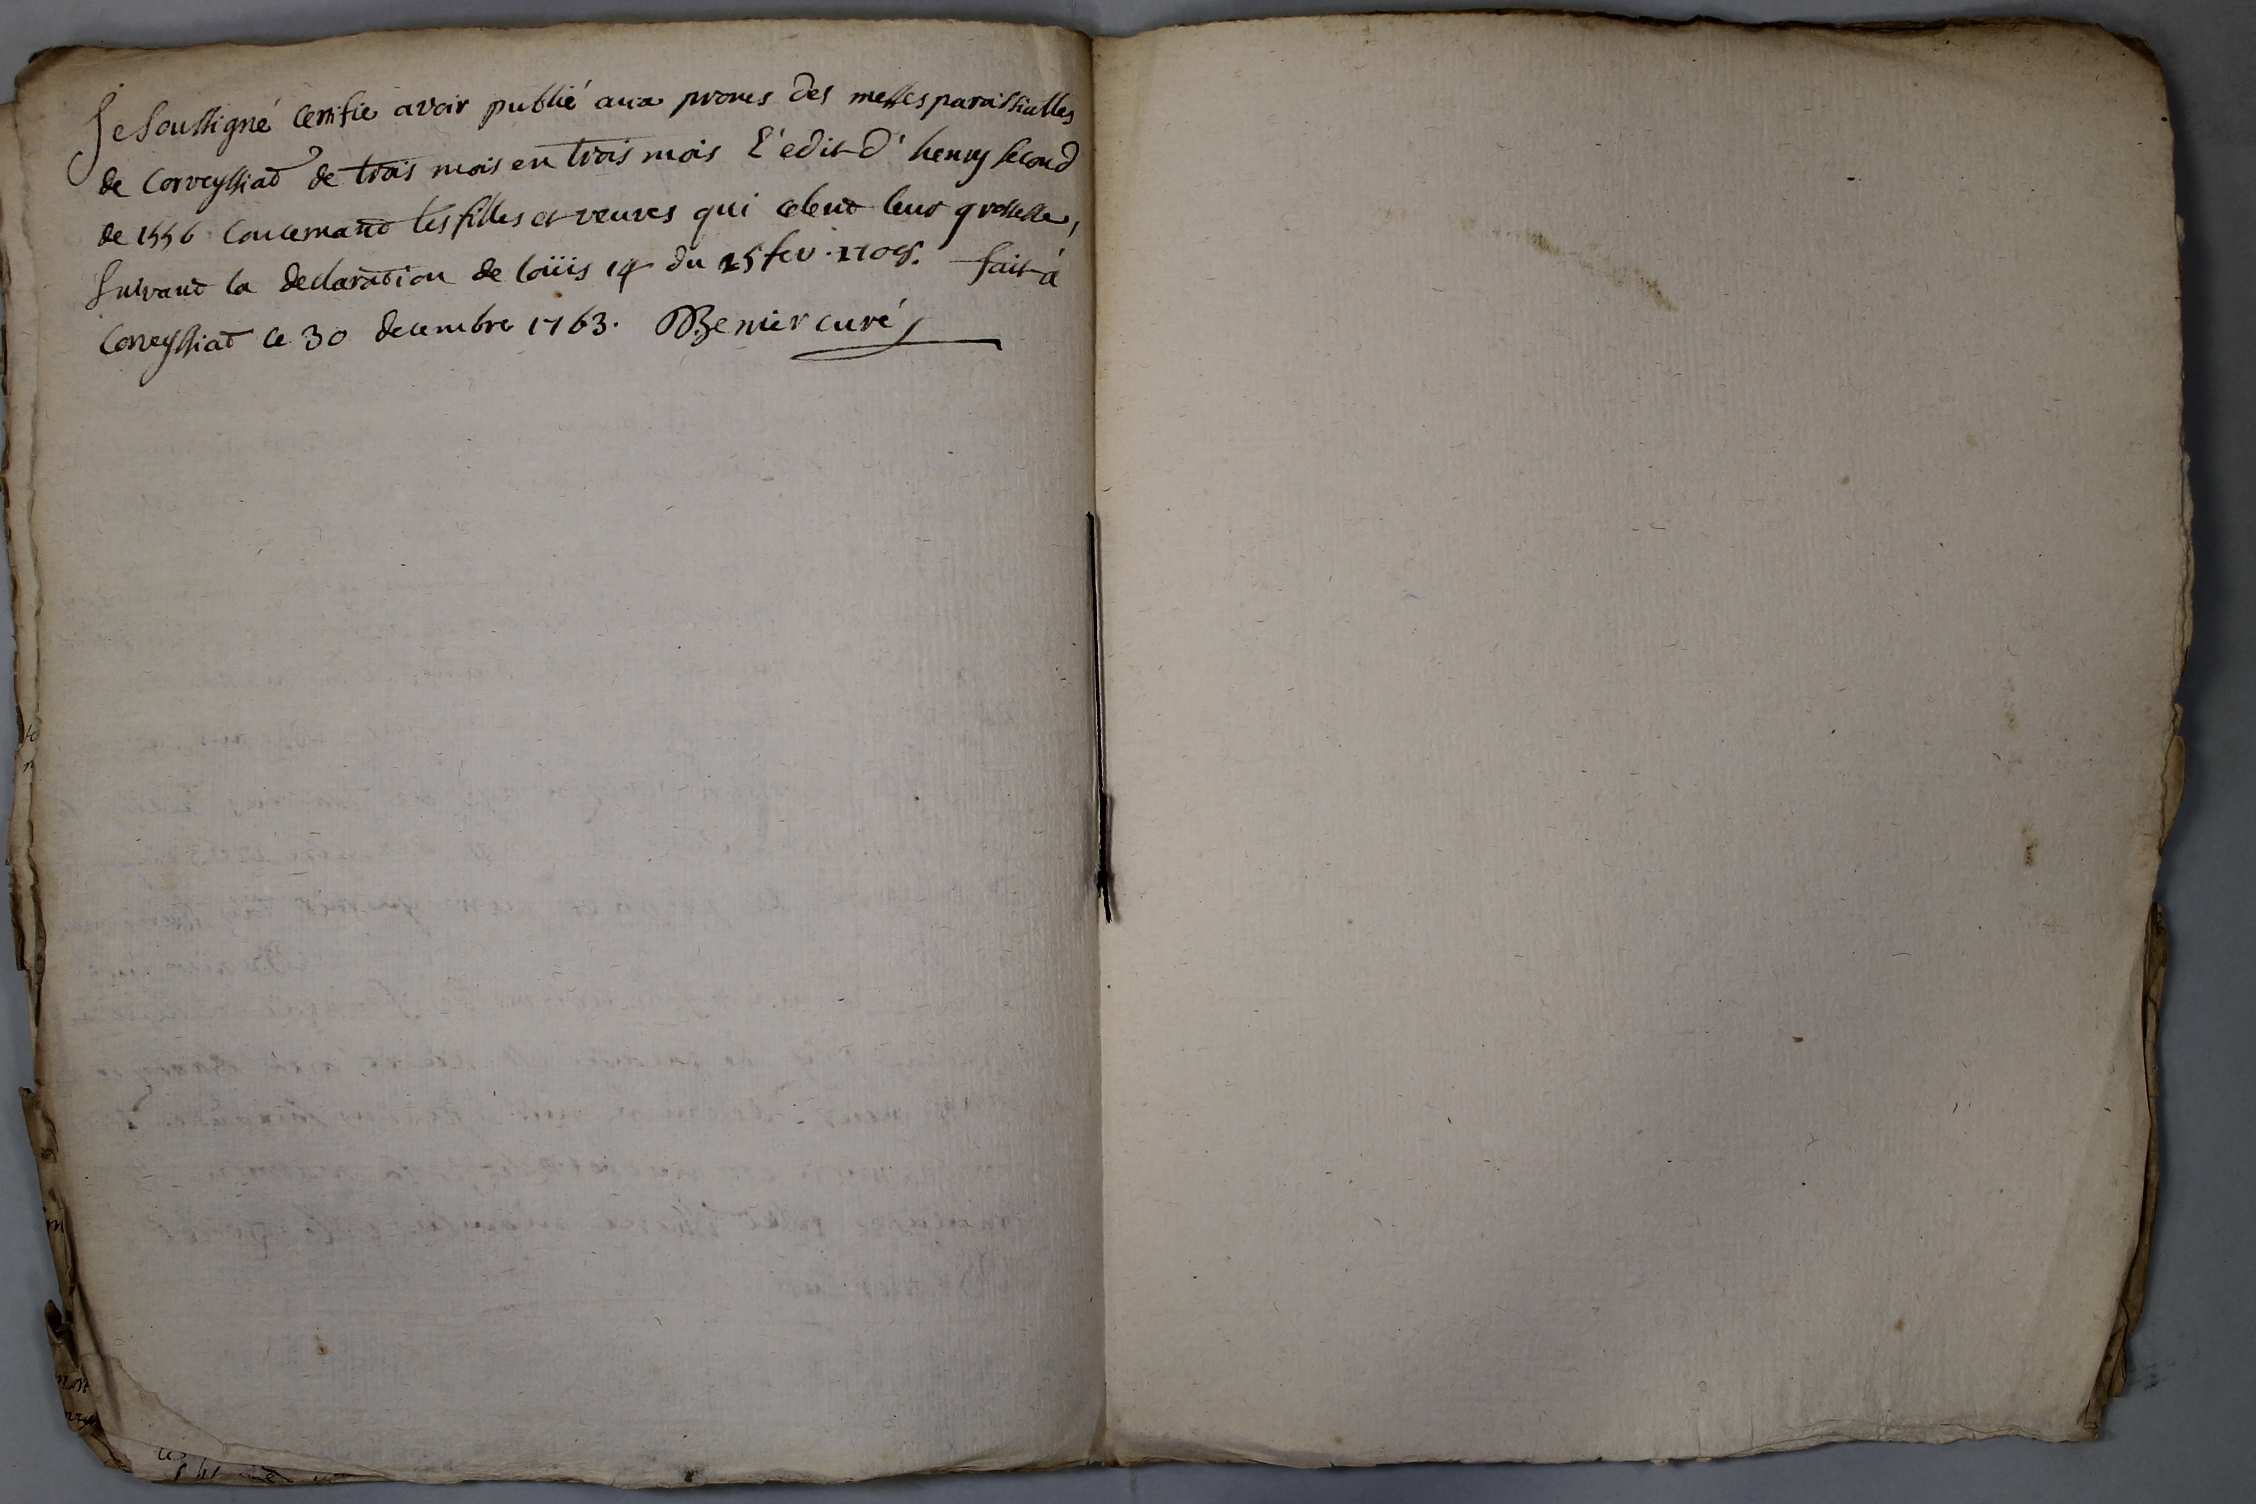 Je soussigné certifie avoir publié aux prones des messes paroissialles
de Corveyssiat de trois mois en trois mois L'edit d'henry second
de 1556 concernant les filles et veuves qui celent leur grossesse,
suivant la declaration de loüis 14 du 25 fev. 1708. fait à
Corveyssiat ce 30 decembre 1763. Benier curé